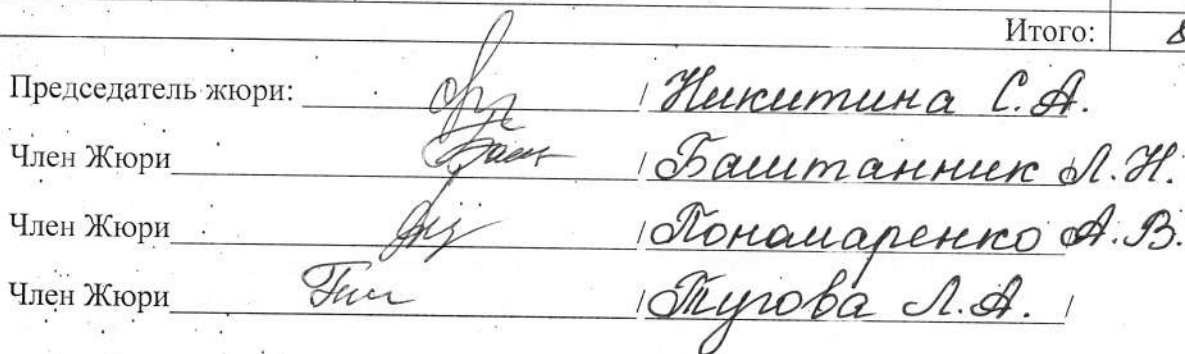 Итого:
Председатель жюри: / Никитина С.А.
Член Жюри / Баштанник Л.Н.
Член Жюри / Пономаренко А.В.
Член Жюри / Тугова Л.А. /